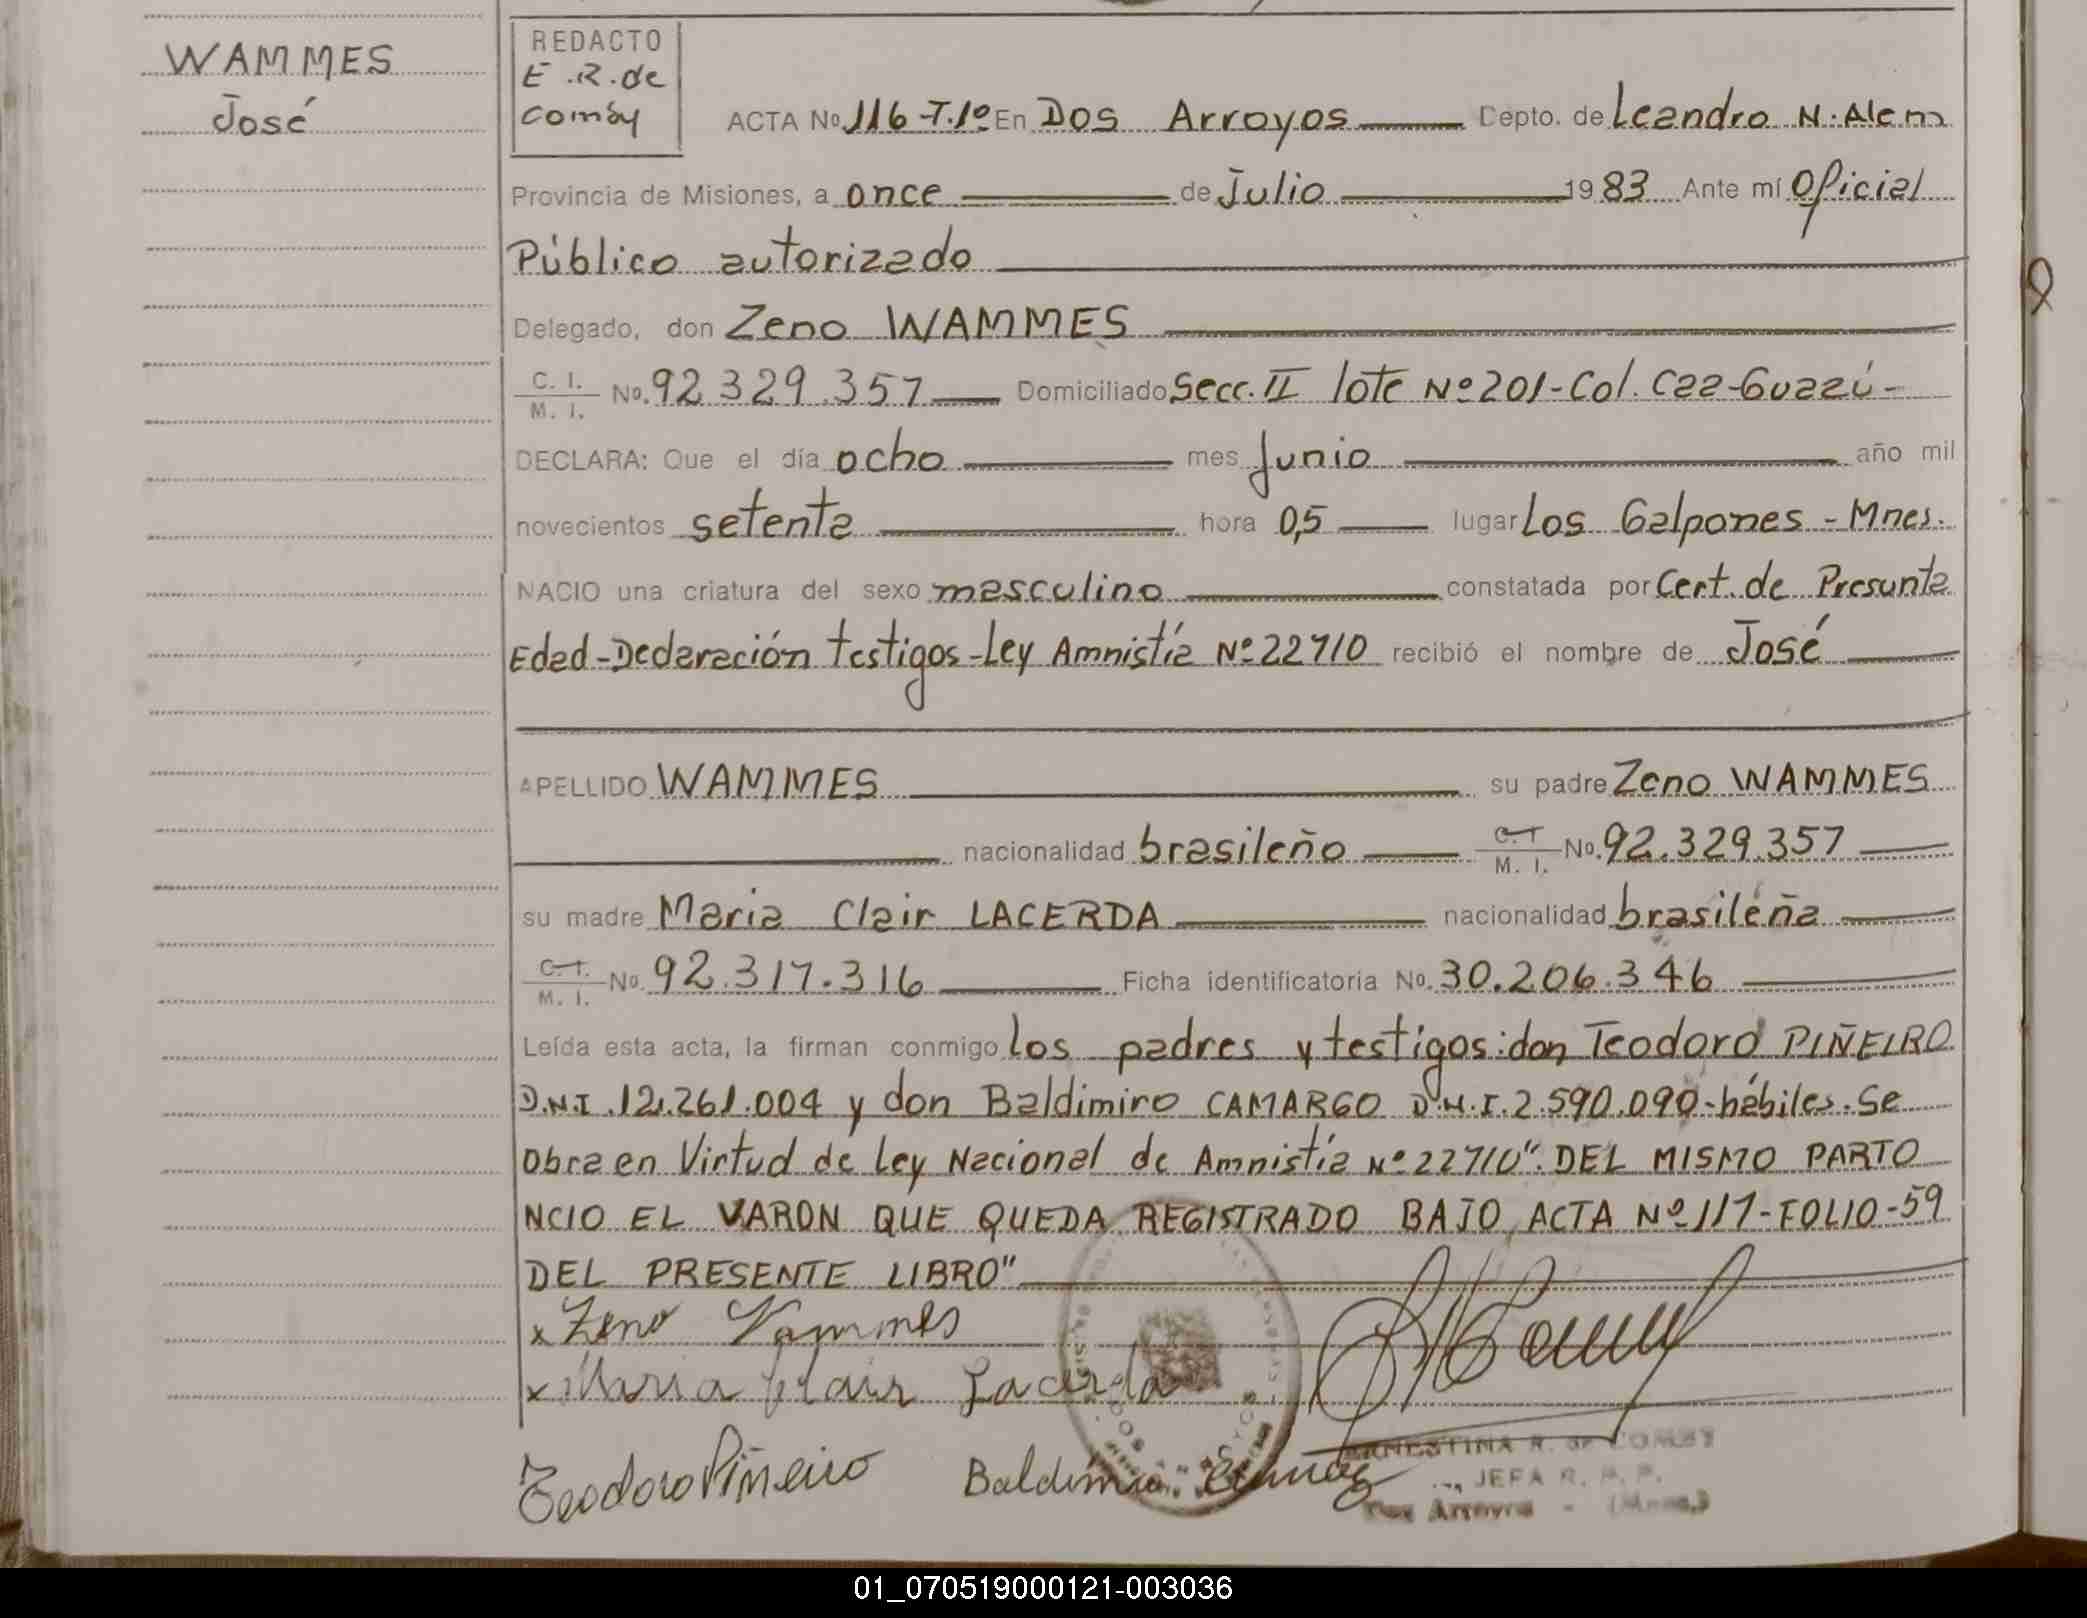 WAMMES
José
REDACTO
E.R.de
Comby
ACTA No 116-T.1º En Dos Arroyos Depto. de Leandro N. Alem
Provincia de Misiones, a once de Julio 1983 Ante mí Oficial
Público autorizado
Delegado, don Zeno WAMMES
C. I. / M. I. No. 92.329.357 Domiciliado Secc. II lote Nº 201-Col. Caa-Guazú-
DECLARA: Que el día ocho mes Junio año mil
novecientos setenta hora 0,5 lugar Los Galpones - Mnes.
NACIO una criatura del sexo masculino constatada por Cert. de Presunta
Edad-Declaración testigos-Ley Amnistía Nº 22710 recibió el nombre de José
APELLIDO WAMMES su padre Zeno WAMMES
nacionalidad brasileño C.I / M. I. No. 92.329.357
su madre Maria Clair LACERDA nacionalidad brasileña
C.I. / M. I. No. 92.317.316 Ficha identificatoria No. 30.206.346
Leída esta acta, la firman conmigo los padres y testigos: don Teodoro PIÑEIRO
D.N.I. 12.261.004 y don Baldimiro CAMARGO D.N.I. 2.590.090-hábiles. Se
Obra en Virtud de Ley Nacional de Amnistía Nº 22710". DEL MISMO PARTO
NCIO EL VARON QUE QUEDA REGISTRADO BAJO ACTA Nº 117-FOLIO-59
DEL PRESENTE LIBRO"
x Zeno Vammes
x Maria Clair Lacerda
Teodoro Piñeiro
ERNESTINA R. de COMBY
JEFA R. P. P.
Dos Arroyos - (Mnes.)
01_070519000121-003036